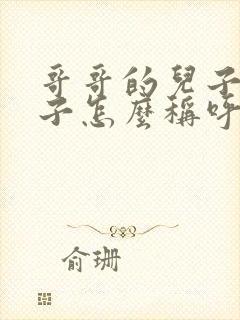 哥哥的兒子
子怎麼稱呼
俞珊